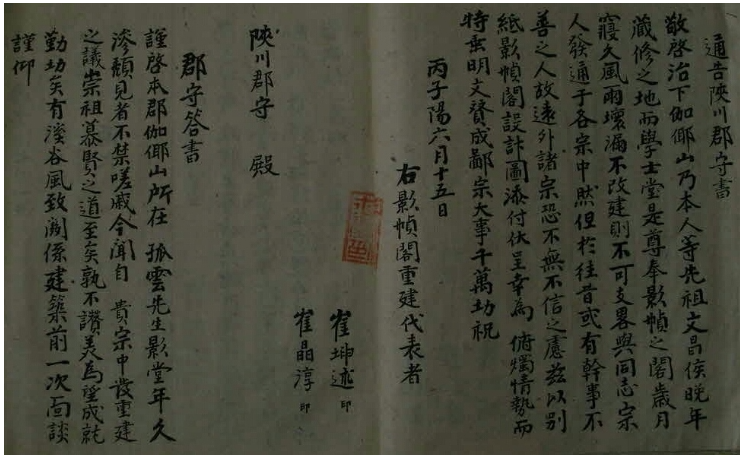 通告陜川郡守書
敬啓治下伽倻山乃本人等先祖文昌侯晚年
藏修之地而學士堂是尊奉影幀之閣歲月
寢久風雨壞漏不改建則不可支畧與同志宗
人發通于各宗中然但於往昔或有幹事不
善之人故遠外諸宗恐不無不信之慮玆以別
紙影幀閣設計圖添付伏呈幸為俯燭情勢而
特垂明文贊成鄙宗大事千萬切祝
丙子陽六月十五日
右影幀閣重建代表者
崔坤述 印
崔晶淳 印
陜川郡守 殿
郡守答書
謹啓本郡伽倻山所在 孤雲先生影堂年久
滲頹見者不禁嗟戚今聞自 貴宗中發重建
之議崇祖慕賢之道至矣孰不讚美為望成就
勤功矣有溪谷風致關係建築前一次面談
謹仰